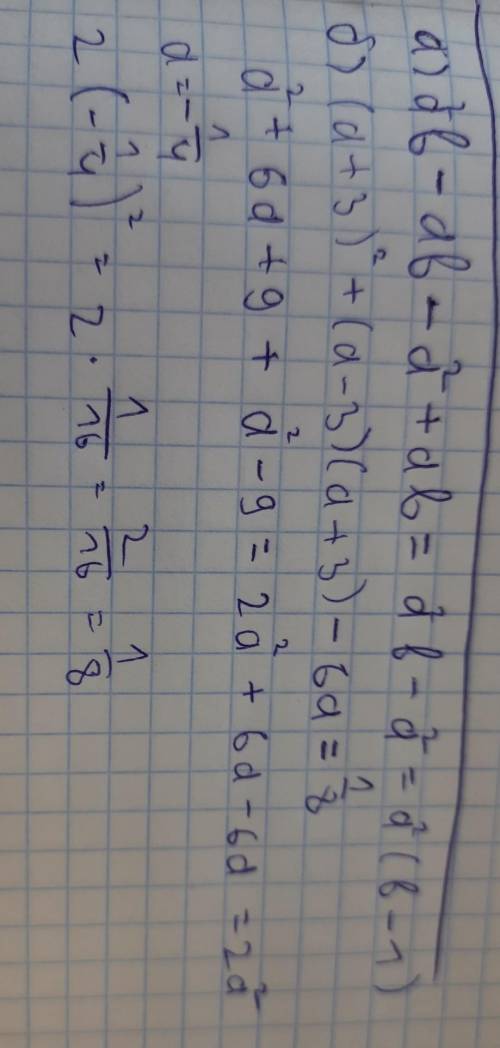 а) a²b - ab - a² + ab = a²b - a² = a²(b - 1)
б) (a+3)² + (a-3)(a+3) - 6a = 1/8
a² + 6a + 9 + a² - 9 = 2a² + 6a - 6a = 2a²
a = -1/4
2(-1/4)² = 2 · 1/16 = 2/16 = 1/8